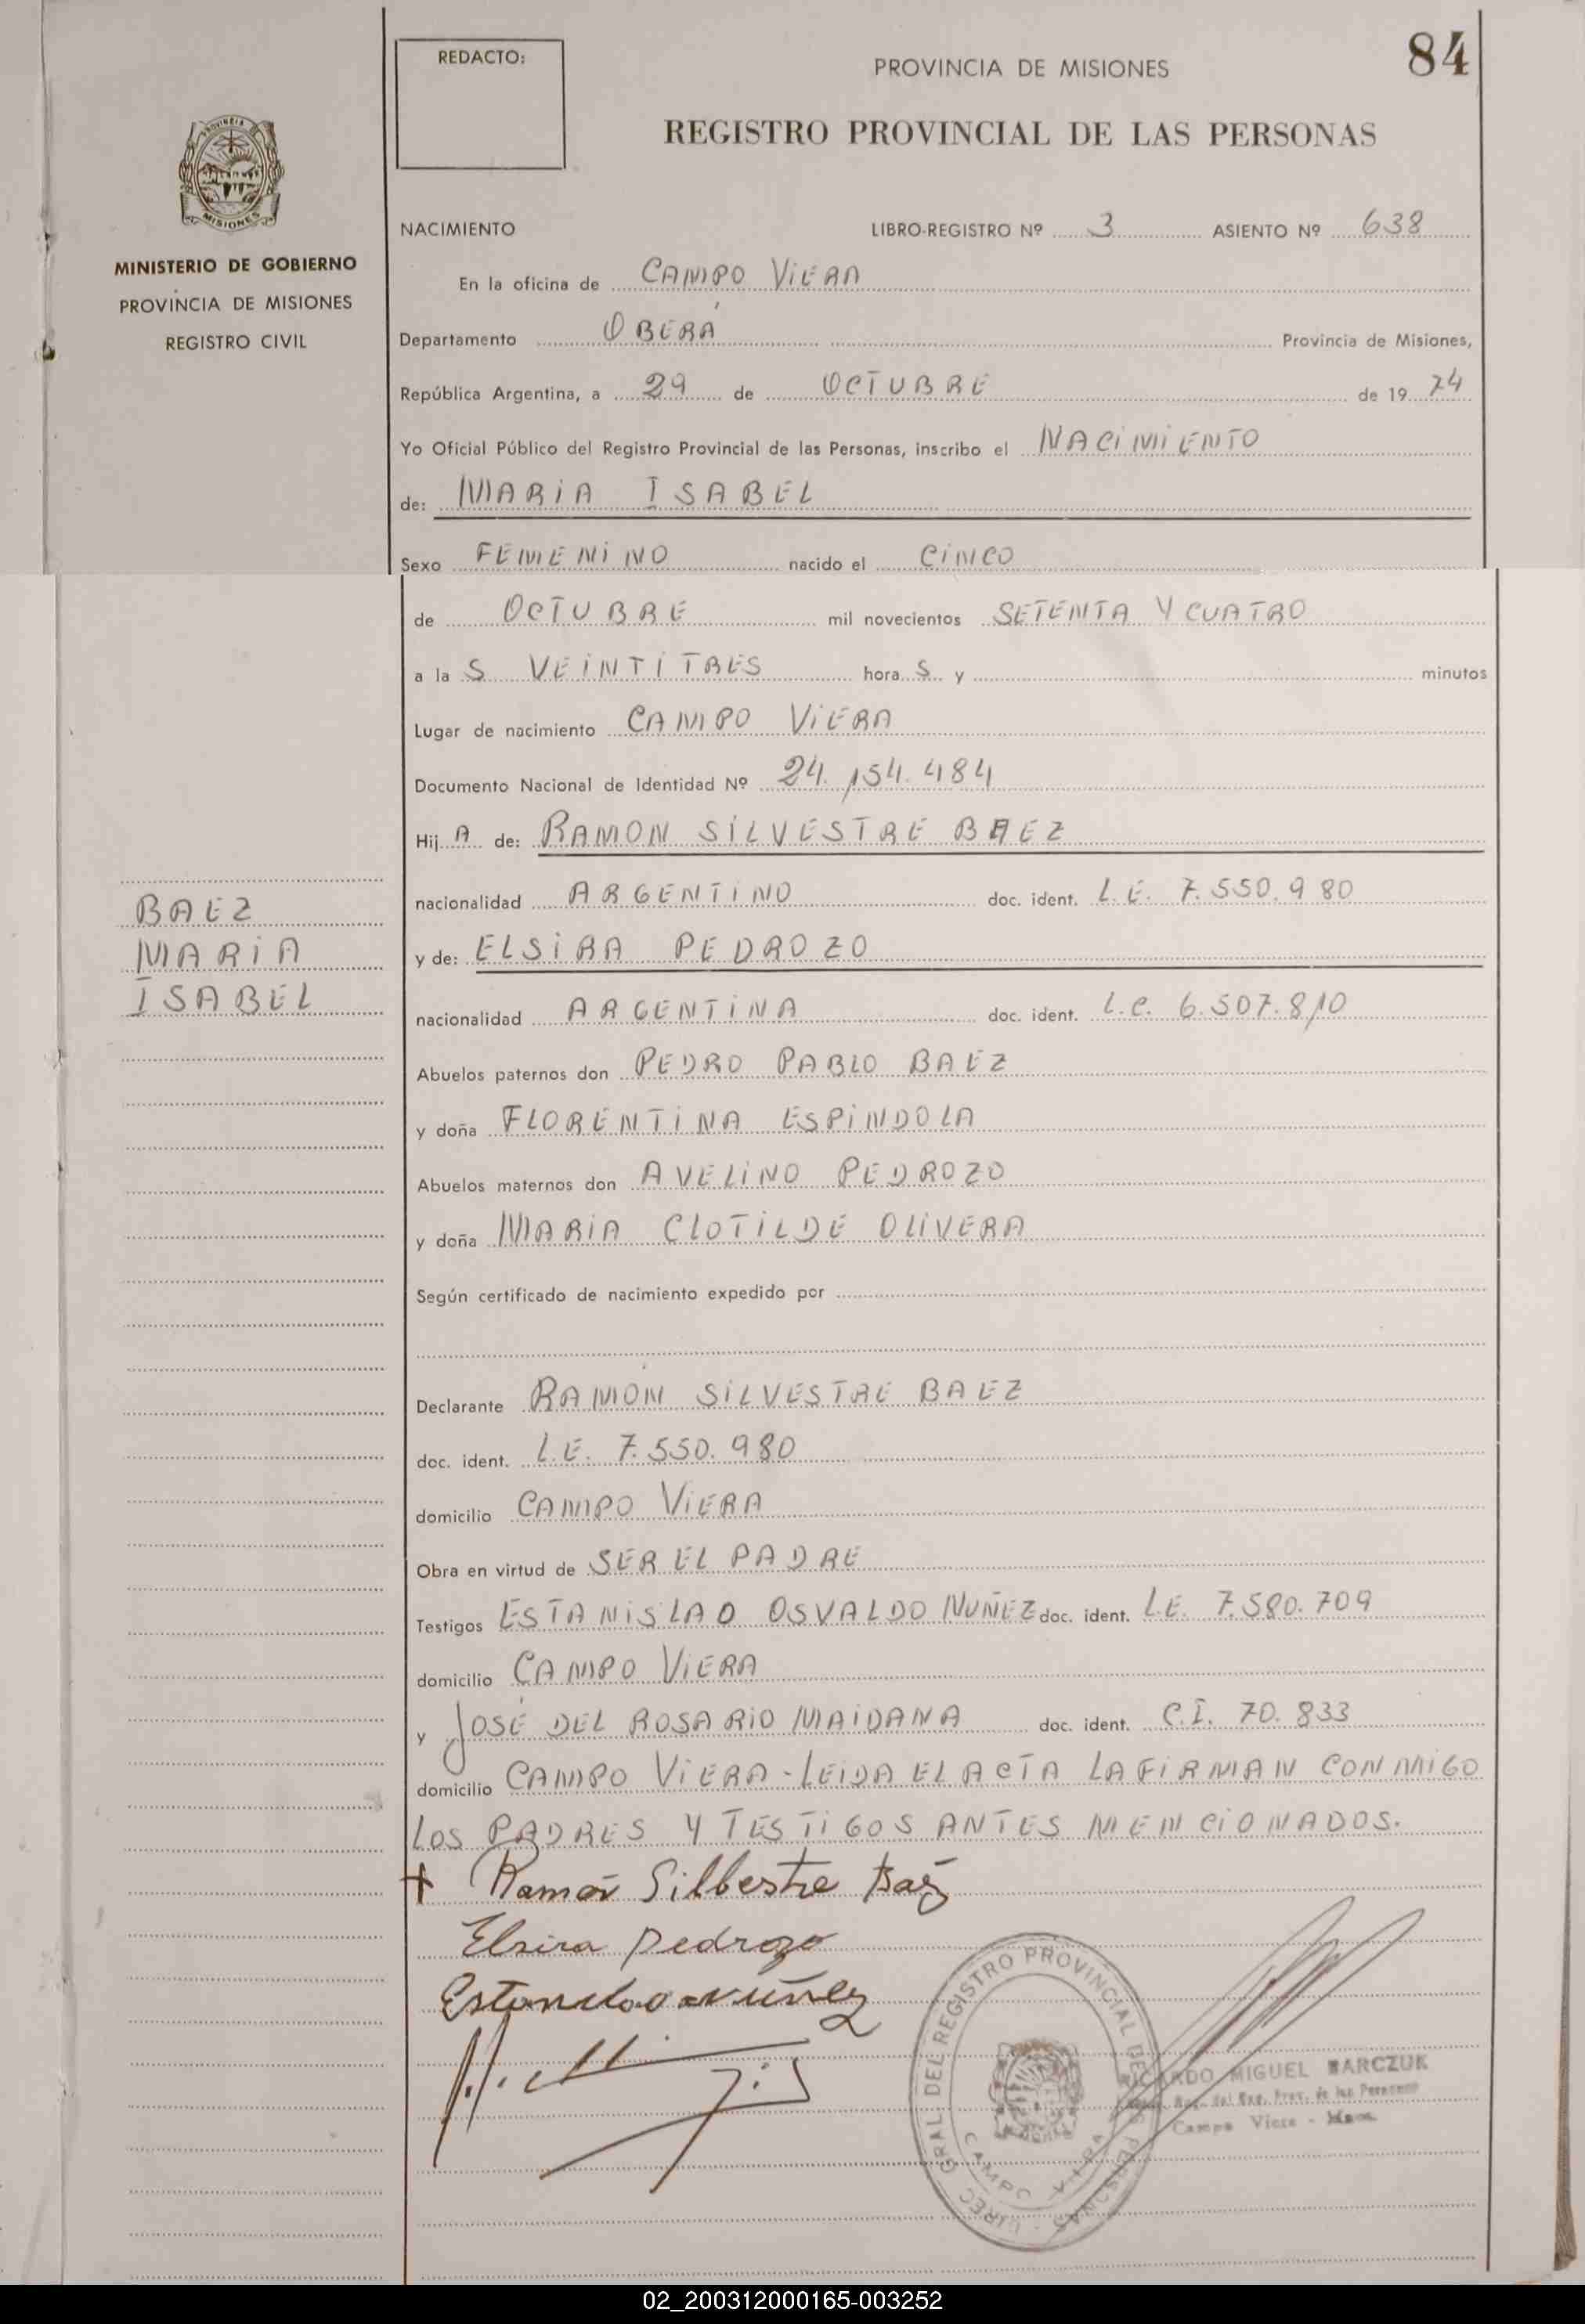 REDACTO:
84
PROVINCIA DE MISIONES
REGISTRO PROVINCIAL DE LAS PERSONAS
PROVINCIA
MISIONES
MINISTERIO DE GOBIERNO
PROVINCIA DE MISIONES
REGISTRO CIVIL
NACIMIENTO LIBRO-REGISTRO Nº 3 ASIENTO Nº 638
En la oficina de CAMPO VIERA
Departamento OBERÁ Provincia de Misiones,
República Argentina, a 29 de OCTUBRE de 19 74
Yo Oficial Público del Registro Provincial de las Personas, inscribo el NACIMIENTO
de: MARIA ISABEL
Sexo FEMENINO nacido el CINCO
de OCTUBRE mil novecientos SETENTA Y CUATRO
a la S VEINTITRES hora S y minutos
Lugar de nacimiento CAMPO VIERA
Documento Nacional de Identidad Nº 24.154.484
Hij A de: RAMON SILVESTRE BAEZ
nacionalidad ARGENTINO doc. ident. L.E. 7.550.980
BAEZ
MARIA
ISABEL
y de: ELSIRA PEDROZO
nacionalidad ARGENTINA doc. ident. L.C. 6.507.810
Abuelos paternos don PEDRO PABLO BAEZ
y doña FLORENTINA ESPINDOLA
Abuelos maternos don AVELINO PEDROZO
y doña MARIA CLOTILDE OLIVERA
Según certificado de nacimiento expedido por
Declarante RAMON SILVESTRE BAEZ
doc. ident. L.E. 7.550.980
domicilio CAMPO VIERA
Obra en virtud de SER EL PADRE
Testigos ESTANISLAO OSVALDO NUÑEZ doc. ident. L.E. 7.580.709
domicilio CAMPO VIERA
y JOSÉ DEL ROSARIO MAIDANA doc. ident. C.I. 70.833
domicilio CAMPO VIERA - LEIDA EL ACTA LA FIRMAN CONMIGO
LOS PADRES Y TESTIGOS ANTES MENCIONADOS.
+ Ramón Silbestre Baéz
Elsira Pedrozo
Estanislao Núñez
DIREC. GRAL. DEL REGISTRO PROVINCIAL DE LAS PERSONAS
CAMPO VIERA
RICARDO MIGUEL BARCZUK
del Reg. Prov. de las Personas
Campo Viera - Mnes.
02_200312000165-003252